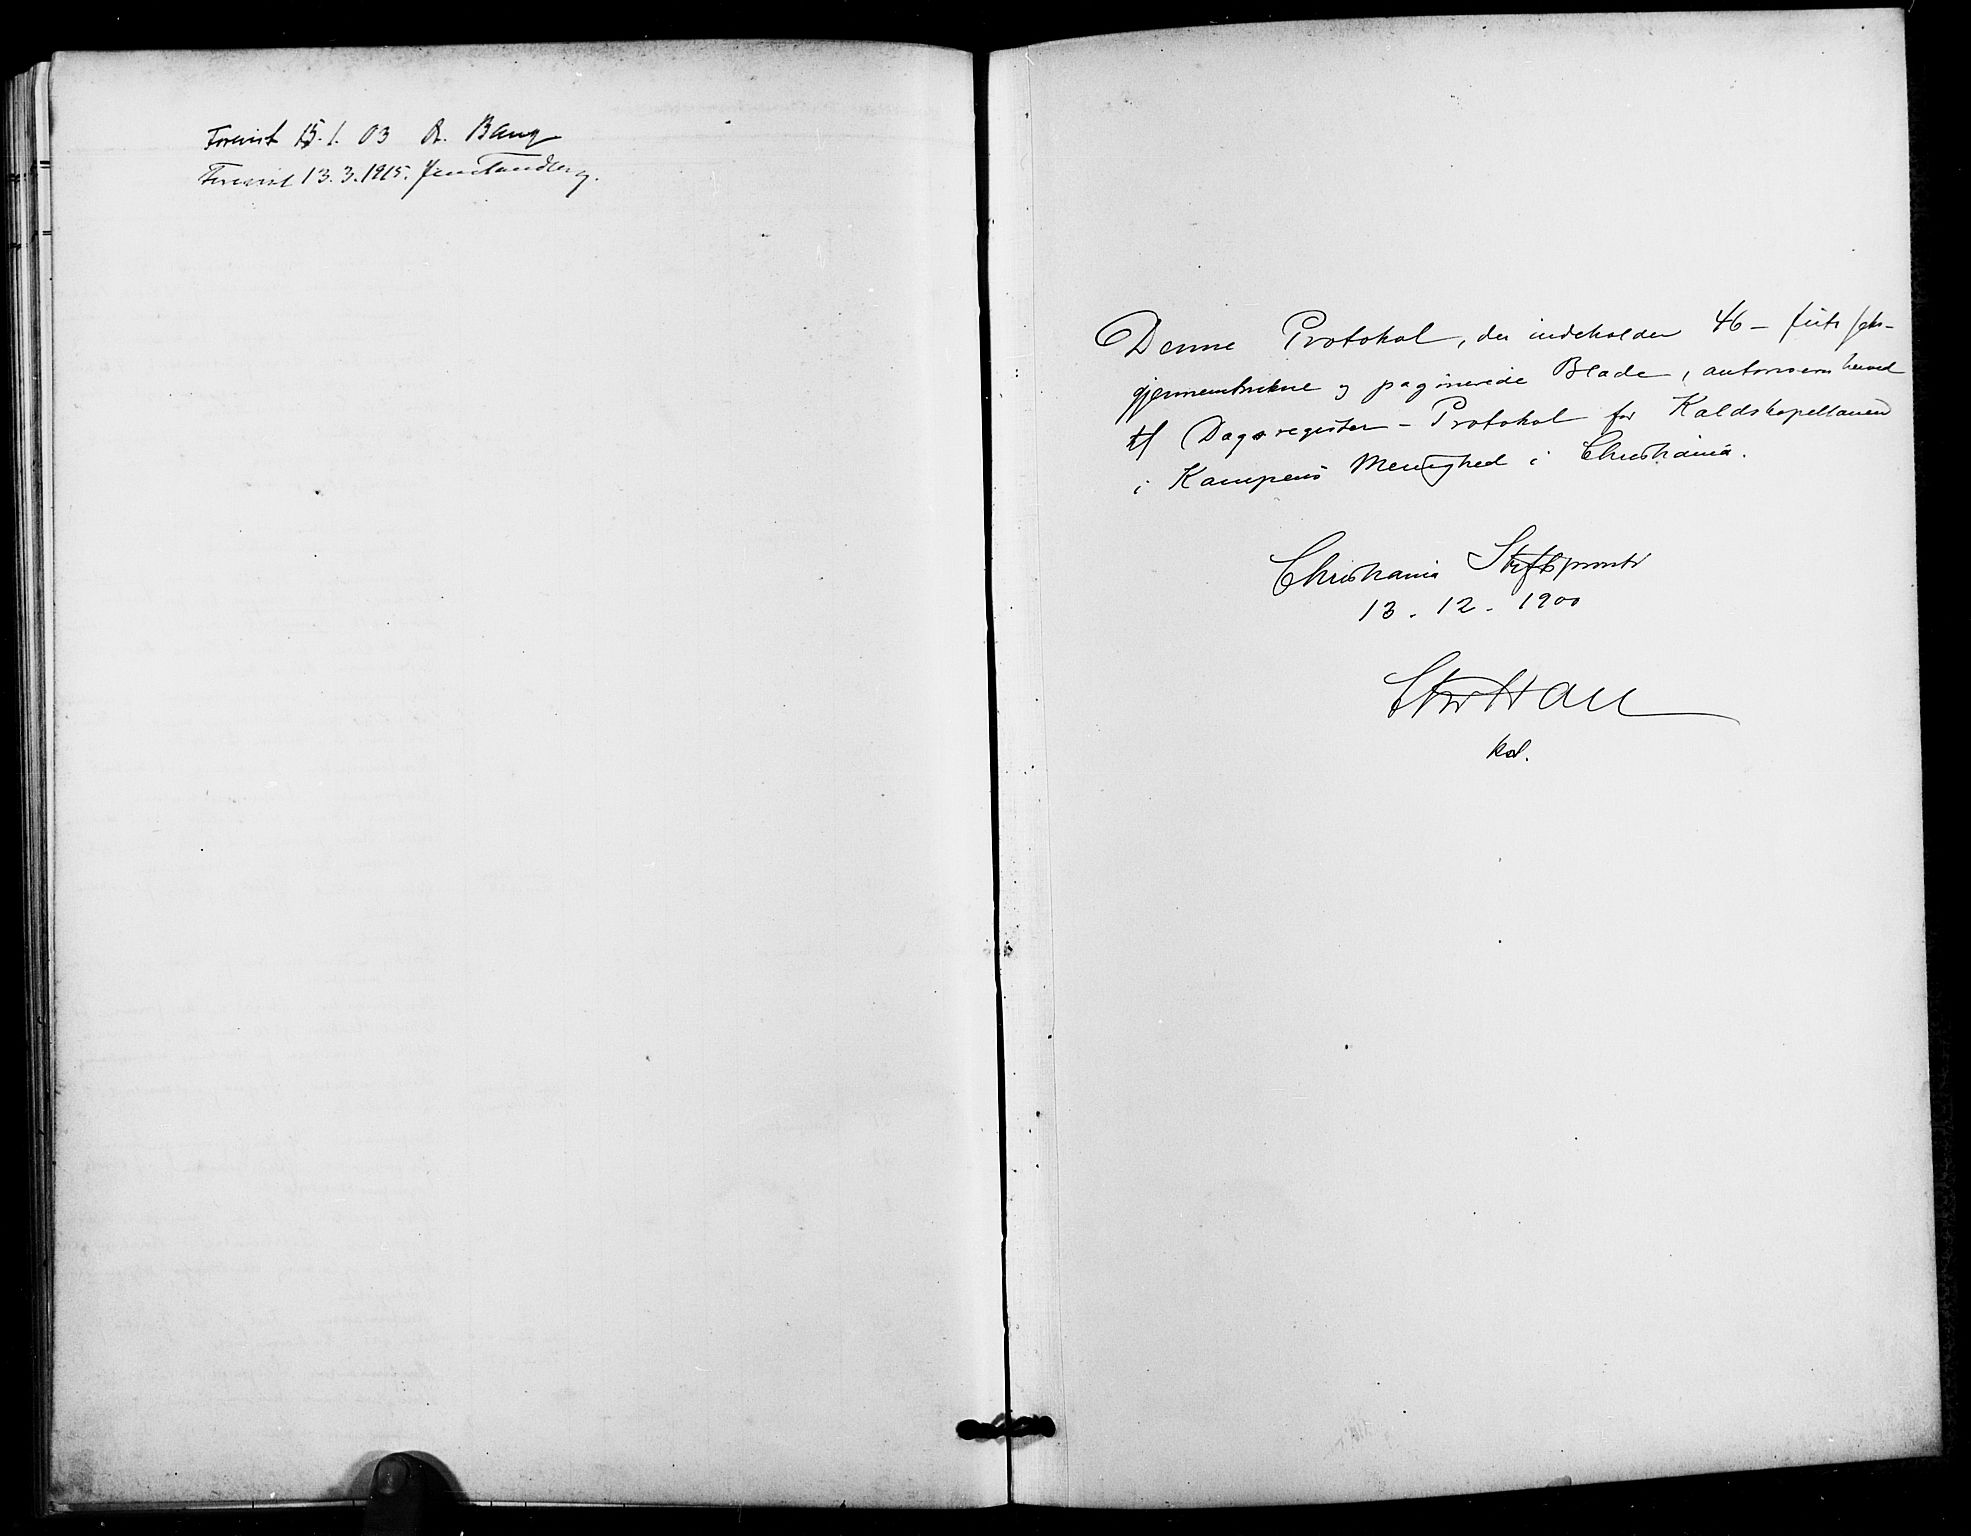 Forevist 15.1.03 A. Bang
Forevist 13.3.1915. Jens Tandberg.
Denne Protokol, der indeholder 46 – firti seks –
gjennemtrukne og paginerede Blade, autoriseres herved
til Dagsregister – Protokol for Kaldskapellanen
i Kampens Menighed i Christiania.
Christiania Stiftsprosti
13 . 12 . 1900
kst.